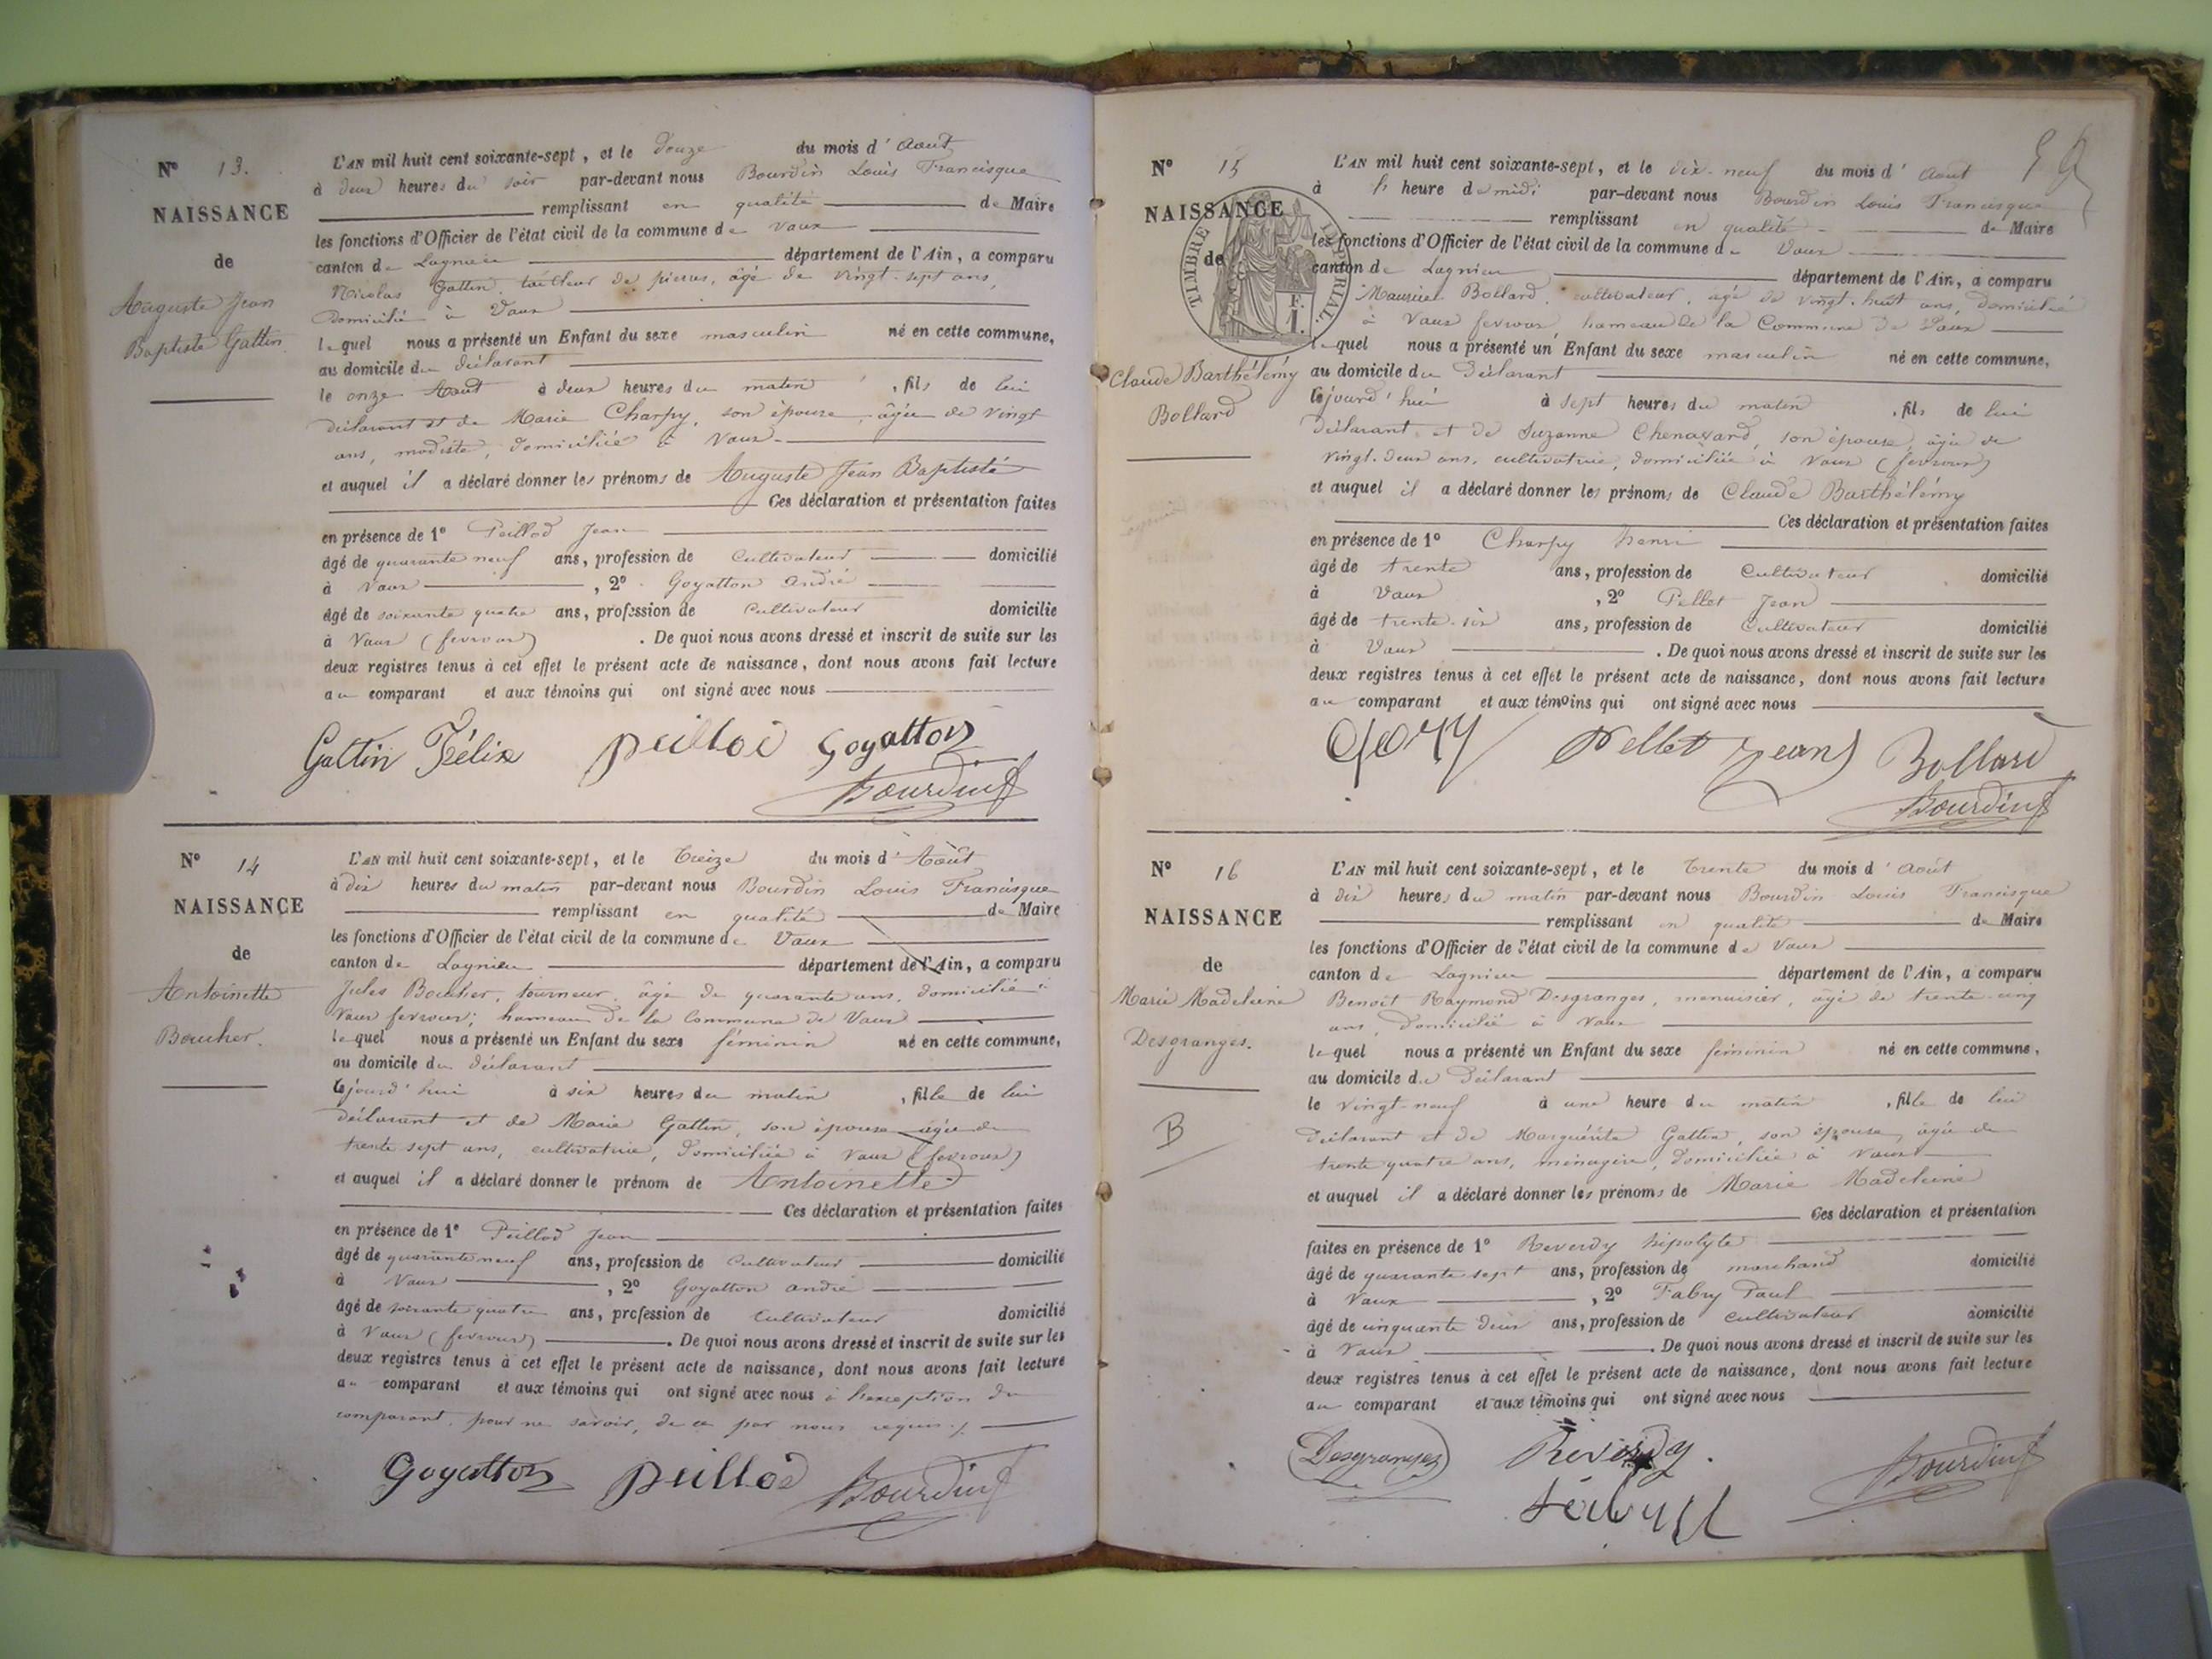 N° 13.
NAISSANCE
de
Auguste Jean
Baptiste Gattin
L'AN mil huit cent soixante-sept, et le Douze du mois d'Aout
à deux heures du soir par-devant nous Bourdin Louis Francisque
remplissant en qualité de Maire
les fonctions d'Officier de l'état civil de la commune de Vaux
canton de Lagnieu département de l'Ain, a comparu
Nicolas Gattin, tailleur de pierres, âgé de vingt-sept ans,
domicilié à Vaux
lequel nous a présenté un Enfant du sexe masculin né en cette commune,
au domicile du déclarant
le onze Aout à deux heures du matin, fils de lui
déclarant et de Marie Charpy, son épouse, âgée de vingt
ans, modiste, domiciliée à Vaux
et auquel il a déclaré donner les prénoms de Auguste Jean Baptiste
Ces déclaration et présentation faites
en présence de 1° Peillod Jean
âgé de quarante neuf ans, profession de Cultivateur domicilié
à Vaux, 2° Goyatton André
âgé de soixante quatre ans, profession de Cultivateur domicilié
à Vaux (fevroux). De quoi nous avons dressé et inscrit de suite sur les
deux registres tenus à cet effet le présent acte de naissance, dont nous avons fait lecture
au comparant et aux témoins qui ont signé avec nous
Gattin Félix peillod Goyatton
Bourdin
N° 14
NAISSANCE
de
Antoinette
Boucher.
L'AN mil huit cent soixante-sept, et le Treize du mois d'Août
à dix heures du matin par-devant nous Bourdin Louis Francisque
remplissant en qualité de Maire
les fonctions d'Officier de l'état civil de la commune de Vaux
canton de Lagnieu département de l'Ain, a comparu
Jules Boucher, tourneur, âgé de quarante ans, domicilié à
Vaux fevroux, hameau de la Commune de Vaux
lequel nous a présenté un Enfant du sexe féminin né en cette commune,
au domicile du déclarant
cejourd'hui à six heures du matin, fille de lui
déclarant et de Marie Gattin, son épouse âgée de
trente sept ans, cultivatrice, domiciliée à Vaux (fevroux)
et auquel il a déclaré donner le prénom de Antoinette
Ces déclaration et présentation faites
en présence de 1° Peillod Jean
âgé de quarante neuf ans, profession de Cultivateur domicilié
à Vaux, 2° Goyatton andré
âgé de soixante quatre ans, profession de Cultivateur domicilié
à Vaux (fevroux). De quoi nous avons dressé et inscrit de suite sur les
deux registres tenus à cet effet le présent acte de naissance, dont nous avons fait lecture
au comparant et aux témoins qui ont signé avec nous à l'exception du
comparant, pour ne savoir, de ce par nous requis.
Goyatton peillod Bourdin
N° 15
NAISSANCE
de
TIMBRE IMPÉRIAL
F. 1.
Claude Barthélémy
Bollard
L'AN mil huit cent soixante-sept, et le dix-neuf du mois d'Aout
à heure de midi par-devant nous Bourdin Louis Francisque
remplissant en qualité de Maire
les fonctions d'Officier de l'état civil de la commune de Vaux
canton de Lagnieu département de l'Ain, a comparu
Maurice Bollard, cultivateur, âgé de vingt-huit ans, domicilié
à Vaux fevroux, hameau de la Commune de Vaux
lequel nous a présenté un Enfant du sexe masculin né en cette commune,
au domicile du Déclarant
cejourd'hui à sept heures du matin, fils de lui
déclarant et de Suzanne Chenavard, son épouse, âgée de
vingt-deux ans, cultivatrice, domiciliée à Vaux (fevroux)
et auquel il a déclaré donner les prénoms de Claude Barthélémy
Ces déclaration et présentation faites
en présence de 1° Charpy henri
âgé de trente ans, profession de Cultivateur domicilié
à Vaux, 2° Pellet Jean
âgé de trente-six ans, profession de Cultivateur domicilié
à Vaux. De quoi nous avons dressé et inscrit de suite sur les
deux registres tenus à cet effet le présent acte de naissance, dont nous avons fait lecture
au comparant et aux témoins qui ont signé avec nous
Pellet jean Bollard
Bourdin
N° 16
NAISSANCE
de
Marie Madeleine
Desgranges.
B
L'AN mil huit cent soixante-sept, et le Trente du mois d'Aout
à dix heures du matin par-devant nous Bourdin Louis Francisque
remplissant en qualité de Maire
les fonctions d'Officier de l'état civil de la commune de Vaux
canton de Lagnieu département de l'Ain, a comparu
Benoit Raymond Desgranges, menuisier, âgé de trente-cinq
ans, domicilié à Vaux
lequel nous a présenté un Enfant du sexe féminin né en cette commune,
au domicile du Déclarant
le vingt-neuf à une heure du matin, fille de lui
déclarant et de Marguérite Gattin, son épouse, âgée de
trente quatre ans, ménagère, domiciliée à Vaux
et auquel il a déclaré donner les prénoms de Marie Madeleine
Ces déclaration et présentation
faites en présence de 1° Reverdy hipolyte
âgé de quarante sept ans, profession de marchand domicilié
à Vaux, 2° Fabry Paul
âgé de cinquante deux ans, profession de cultivateur domicilié
à Vaux. De quoi nous avons dressé et inscrit de suite sur les
deux registres tenus à cet effet le présent acte de naissance, dont nous avons fait lecture
au comparant et aux témoins qui ont signé avec nous
Desgranges Reverdy. Bourdin